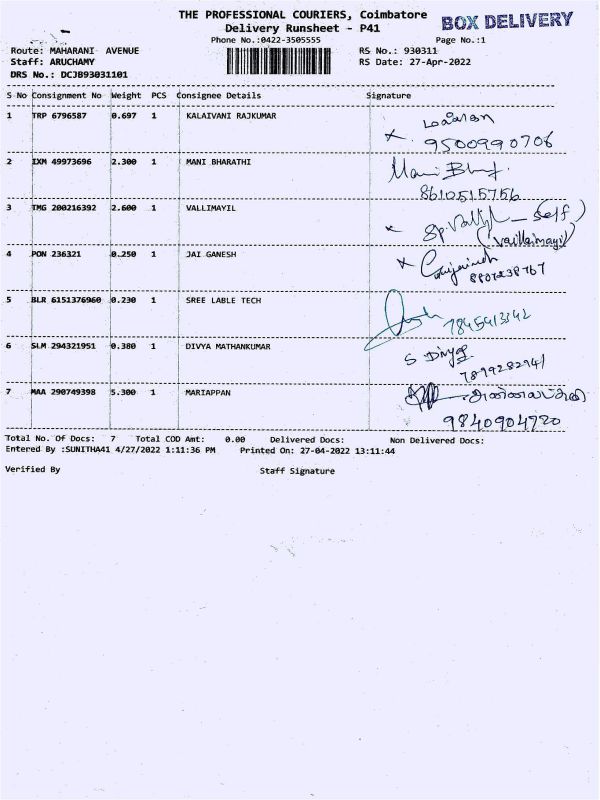 THE PROFESSIONAL COURIERS, Coimbatore
BOX DELIVERY
Delivery Runsheet - P41
Phone No.:0422-3505555
Page No.:1
Route: MAHARANI AVENUE
RS No.: 930311
Staff: ARUCHAMY
RS Date: 27-Apr-2022
DRS No.: DCJB93031101
S No Consignment No Weight PCS Consignee Details Signature
1 TRP 6796587 0.697 1 KALAIVANI RAJKUMAR
9500990706
2 IXM 49973696 2.300 1 MANI BHARATHI
8610515756
3 TMG 200216392 2.600 1 VALLIMAYIL
(self)
(Vaillaimayil)
4 PON 236321 0.250 1 JAI GANESH
5 BLR 6151376960 0.230 1 SREE LABLE TECH
7845413342
6 SLM 294321951 0.380 1 DIVYA MATHANKUMAR
S Divya
7 MAA 290749398 5.300 1 MARIAPPAN
9840904720
Total No. Of Docs: 7 Total COD Amt: 0.00 Delivered Docs: Non Delivered Docs:
Entered By :SUNITHA41 4/27/2022 1:11:36 PM Printed On: 27-04-2022 13:11:44
Verified By Staff Signature